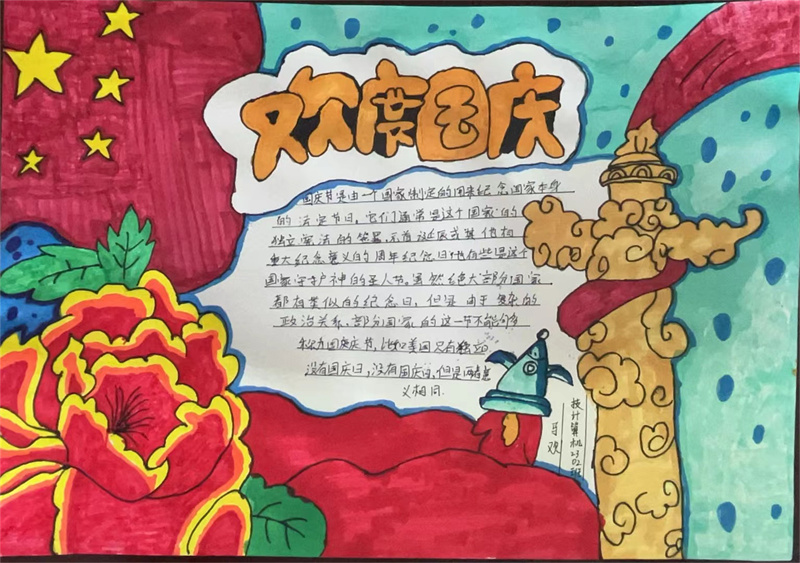 欢度国庆
国庆节是由一个国家制定的用来纪念国家本身
的法定节日,它们通常是这个国家的
独立、宪法的签署、元首诞辰或其他有
重大纪念意义的周年纪念日也有些是这个
国家守护神的圣人节。虽然绝大部分国家
都有类似的纪念日,但是由于复杂的
政治关系,部分国家的这一节不能
称为国庆节,比如美国只有独立日
没有国庆日,但是两者意
义相同.
技计算机2302班
乐欢